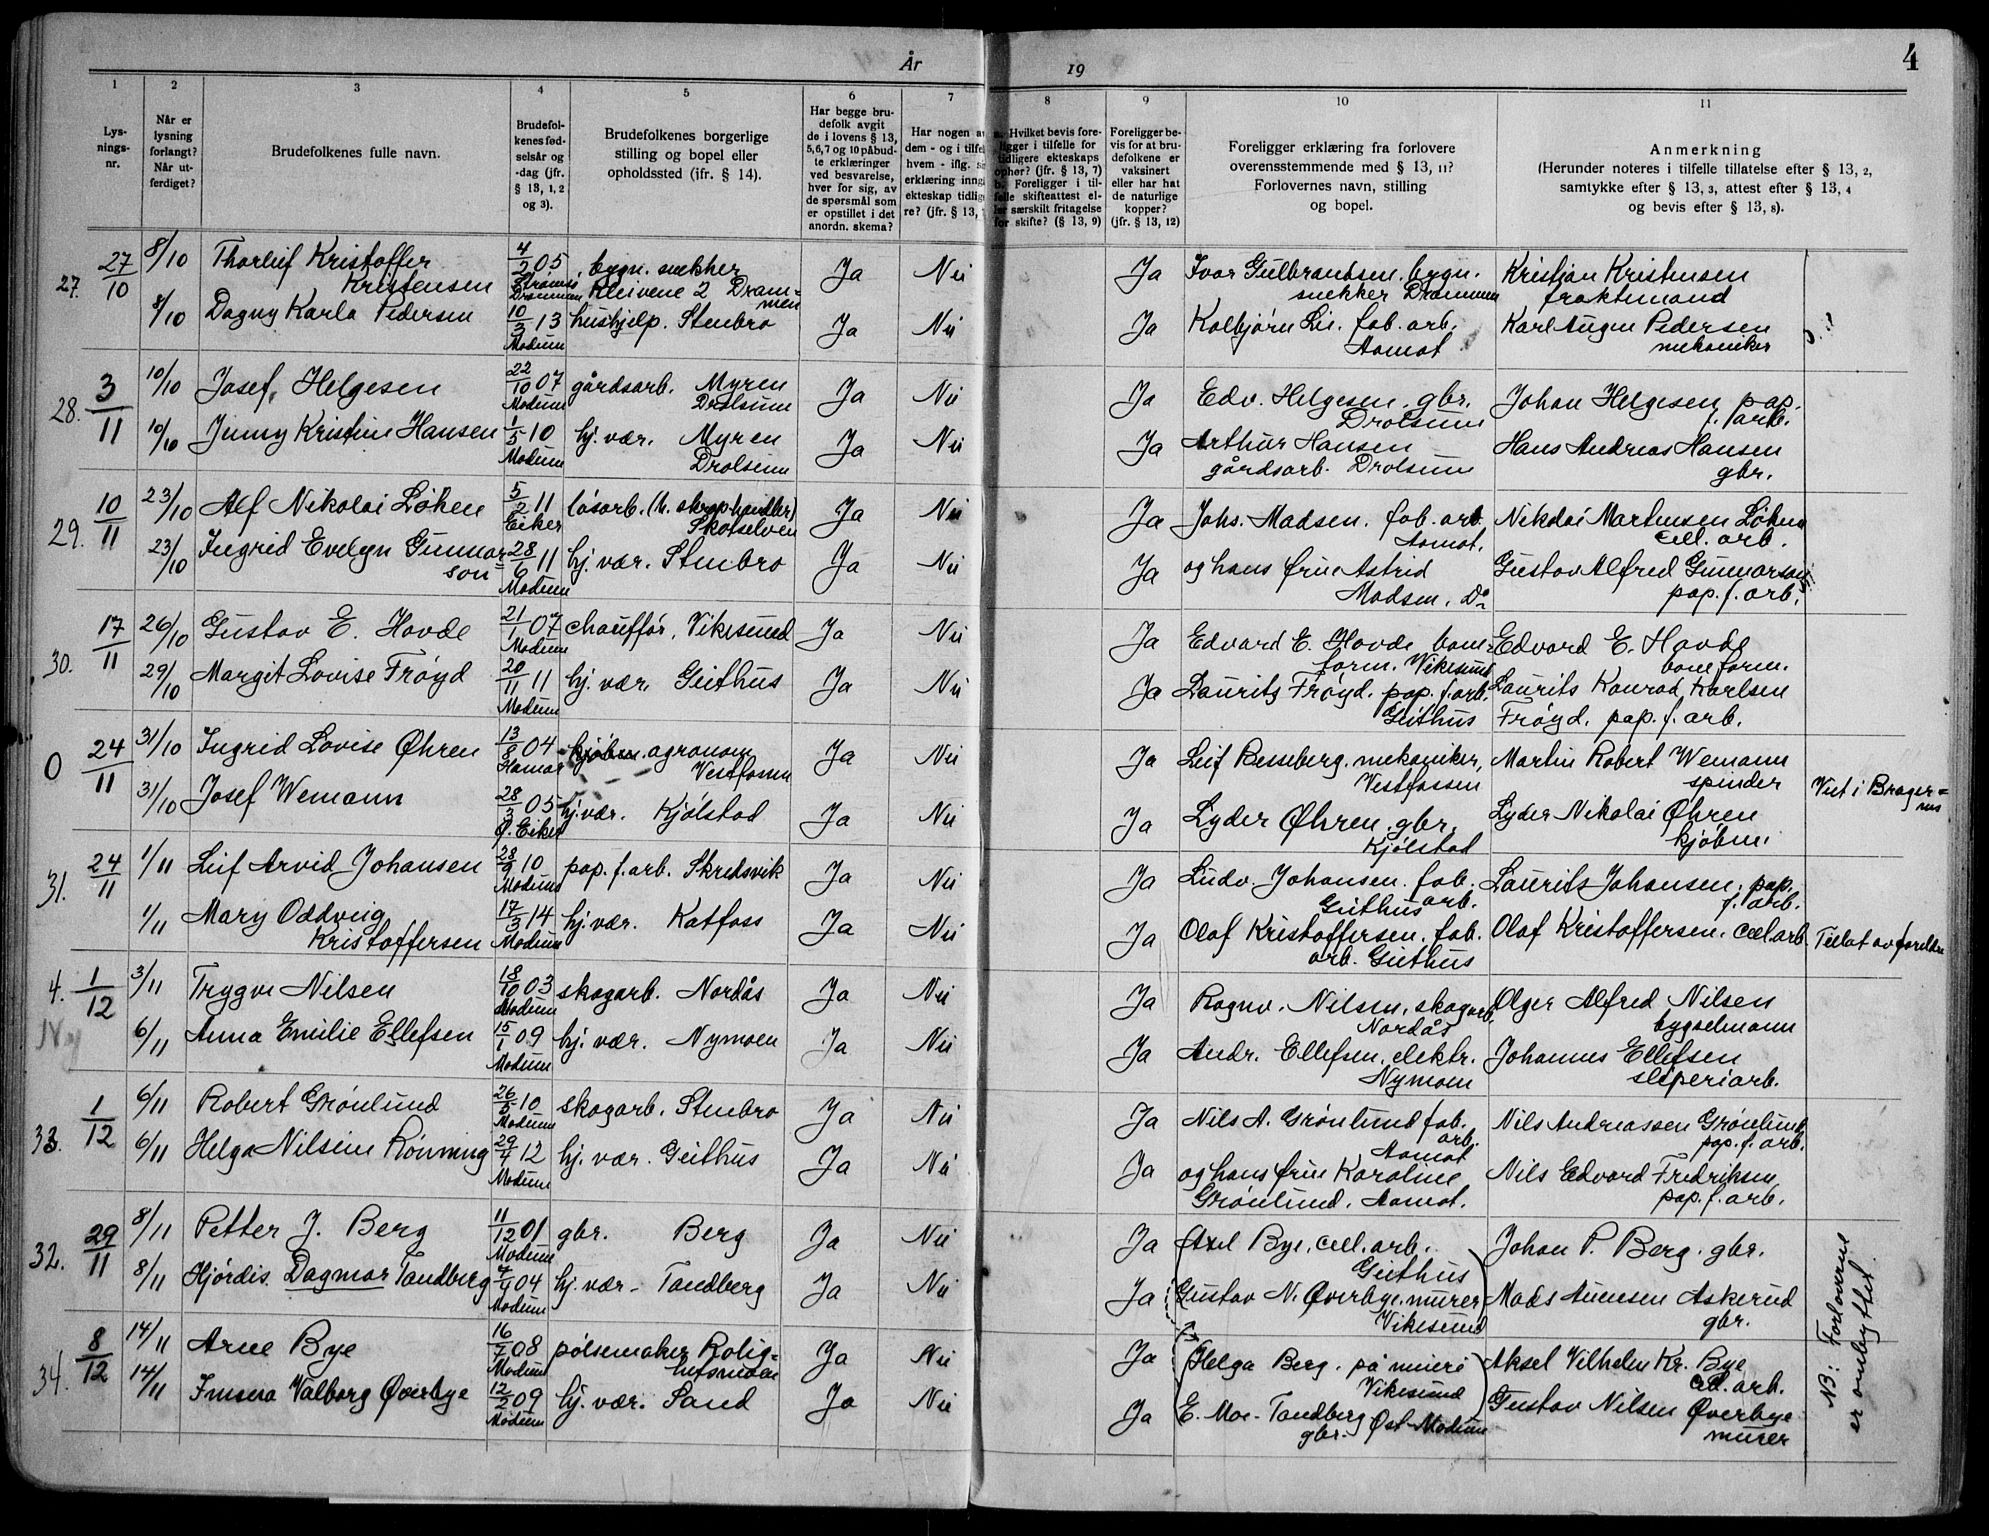 År 19
4
1 2 3 4 5 6 7 8 9 10 11
Lys-
nings-
nr.
Når er
lysning
forlangt?
Når ut-
ferdiget?
Brudefolkenes fulle navn.
Brudefol-
kenes fød-
selsår og
-dag (jfr.
§ 13, 1, 2
og 3).
Brudefolkenes borgerlige
stilling og bopel eller
opholdssted (jfr. § 14).
Har begge bru-
defolk avgit
de i lovens § 13,
5,6,7 og 10 påbud-
te erklæringer
ved besvarelse,
hver for sig, av
de spørsmål som
er opstillet i det
anordn. skema?
Har nogen av
dem - og i tilfel
hvem - iflg. si
erklæring inng
ekteskap tidlig
re? (jfr. § 13,
a. Hvilket bevis fore-
ligger i tilfelle for
tidligere ekteskaps
ophør? (jfr. § 13, 7)
b. Foreligger i til-
felle skifteattest el-
ler særskilt fritagelse
for skifte? (§ 13, 9)
Foreligger be-
vis for at bru-
defolkene er
vaksinert
eller har hat
de naturlige
kopper?
(jfr. § 13, 12)
Foreligger erklæring fra forlovere
overensstemmende med § 13, 11?
Forlovernes navn, stilling
og bopel.
Anmerkning
(Herunder noteres i tilfelle tillatelse efter § 13, 2,
samtykke efter § 13, 3, attest efter § 13, 4
og bevis efter § 13, 8).
27. 27/10 8/10 Thorleif Kristoffer
Kristensen 4/2 05 Strømsø Drammen bygn. snekker
Kleivene 2 Dram-
men Ja Nei Ja Ivar Gulbrandsen, bygn.
snekker Drammen Kristian Kristensen
fraktemand
8/10 Dagny Karla Pedersen 10/3 13 Modum hushjelp. Stenbro Ja Nei Ja Kolbjørn Lie. fab. arb.
Aamot Karl August Pedersen
mekaniker
28. 3/11 10/10 Josef Helgesen 22/10 07 Modum gårdsarb. Myren
Drolsum Ja Nei Ja Edv. Helgesen, gbr.
Drolsum Johan Helgesen pap.
f. arb.
10/10 Jenny Kristine Hansen 1/5 10 Modum hj. vær. Myren
Drolsum Ja Nei Ja Arthur Hansen
gårdsarb. Drolsum Hans Andreas Hansen
gbr.
29. 10/11 23/10 Alf Nikolai Løken 5/2 11 Eiker løsarb. (h. skraphandler)
Skotselven Ja Nei Ja Johs. Madsen. fab. arb.
Aamot. Nikolai Martensen Løken
cell. arb.
23/10 Ingrid Evelyn Gunnar-
son 28/6 11 Modum hj. vær. Stenbro Ja Nei Ja og hans frue Astrid
Madsen. Do Gustav Alfred Gunnarson
pap. f. arb.
30. 17/11 26/10 Gustav E. Hovde 21/1 07 Modum chauffør, Vikesund Ja Nei Ja Edvard E. Hovde bane-
form. Vikesund Edvard E. Hovde
baneform.
29/10 Margit Lovise Frøyd 20/11 11 Modum hj. vær. Geithus Ja Nei Ja Laurits Frøyd. pap. f. arb.
Geithus Laurits Konrad Karlsen
Frøyd. pap. f. arb.
0 24/11 31/10 Ingrid Lovise Øhren 13/8 04 Hamar kjøbm. agronom
Vestfossen Ja Nei Ja Leif Besseberg. mekaniker,
Vestfossen Martin Robert Wemann
spinder Viet i Brager=
nes
31/10 Josef Wemann 28/3 05 Ø. Eiker hj. vær. Kjølstad Ja Nei Ja Lyder Øhren. gbr.
Kjølstad Lyder Nikolai Øhren
kjøbm.
31. 24/11 1/11 Leif Arvid Johansen 28/9 10 Modum pap. f. arb. Skredsvik Ja Nei Ja Ludv. Johansen. fab.
arb. Geithus Laurits Johansen, pap.
f. arb.
1/11 Mary Oddveig
Kristoffersen 17/3 14 Modum hj. vær. Katfoss Ja Nei Ja Olaf Kristoffersen. fab.
arb. Geithus Olaf Kristoffersen. cell. arb. Tillat av foreldre
4. 1/12 3/11 Trygve Nilsen 18/10 03 Modum skogarb. Nordås Ja Nei Ja Ragnv. Nilsen, skogarb.
Nordås Olger Alfred Nilsen
bygselmann
Ny 6/11 Anna Emilie Ellefsen 15/1 09 Modum hj. vær. Nymoen Ja Nei Ja Andr. Ellefsen, elektr.
Nymoen Johannes Ellefsen
sliperiarb.
33. 1/12 6/11 Robert Grønlund 26/5 10 Modum skogarb. Stenbro Ja Nei Ja Nils A. Grønlund fab.
arb. Aamot Nils Andreassen Grønlund
pap. f. arb.
6/11 Helga Nilsine Rønning 29/4 12 Modum hj. vær. Geithus Ja Nei Ja og hans frue Karoline
Grønlund. Aamot. Nils Edvard Fredriksen
pap. f. arb.
32. 29/11 8/11 Petter J. Berg 11/12 01 Modum gbr. Berg Ja Nei Ja Axel Bye. cell. arb.
Geithus Johan P. Berg. gbr.
8/11 Hjørdis Dagmar Tandberg 7/4 04 Modum hj. vær. Tandberg Ja Nei Ja Gustav N. Øverbye. murer
Vikesund Mads Aunesen Askerud
gbr.
34. 8/12 14/11 Arne Bye 16/7 08 Modum pølsemaker Rolig=
hetsmoen Ja Nei Ja Helga Berg. på mineri
Vikesund Aksel Vilhelm Kr. Bye
cell. arb.
14/11 Valborg Øverbye 12/2 09 Modum hj. vær. Sand Ja Nei Ja E. Moe-Tandberg
gbr. Øst-Modum Gustav Nilsen Øverbye
murer
NB: Forloverne
er ombyttet.